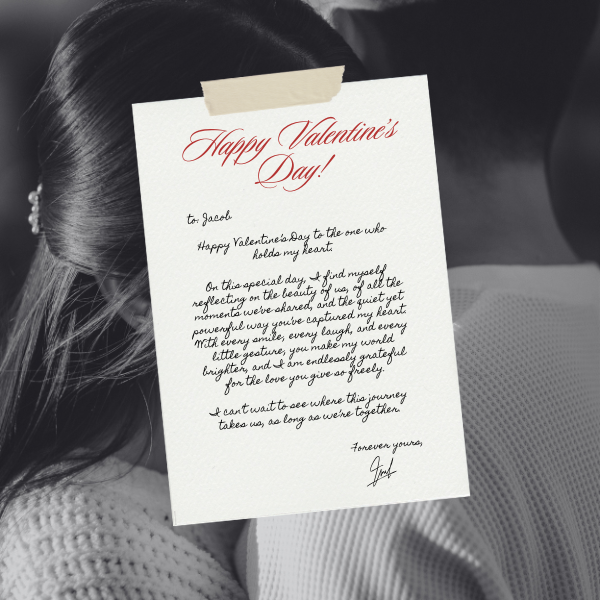 Happy Valentine's
Day!
to: Jacob
Happy Valentine's Day to the one who
holds my heart.
On this special day, I find myself
reflecting on the beauty of us, of all the
moments we've shared, and the quiet yet
powerful way you've captured my heart.
With every smile, every laugh, and every
little gesture, you make my world
brighter, and I am endlessly grateful
for the love you give so freely.
I can't wait to see where this journey
takes us, as long as we're together.
Forever yours,